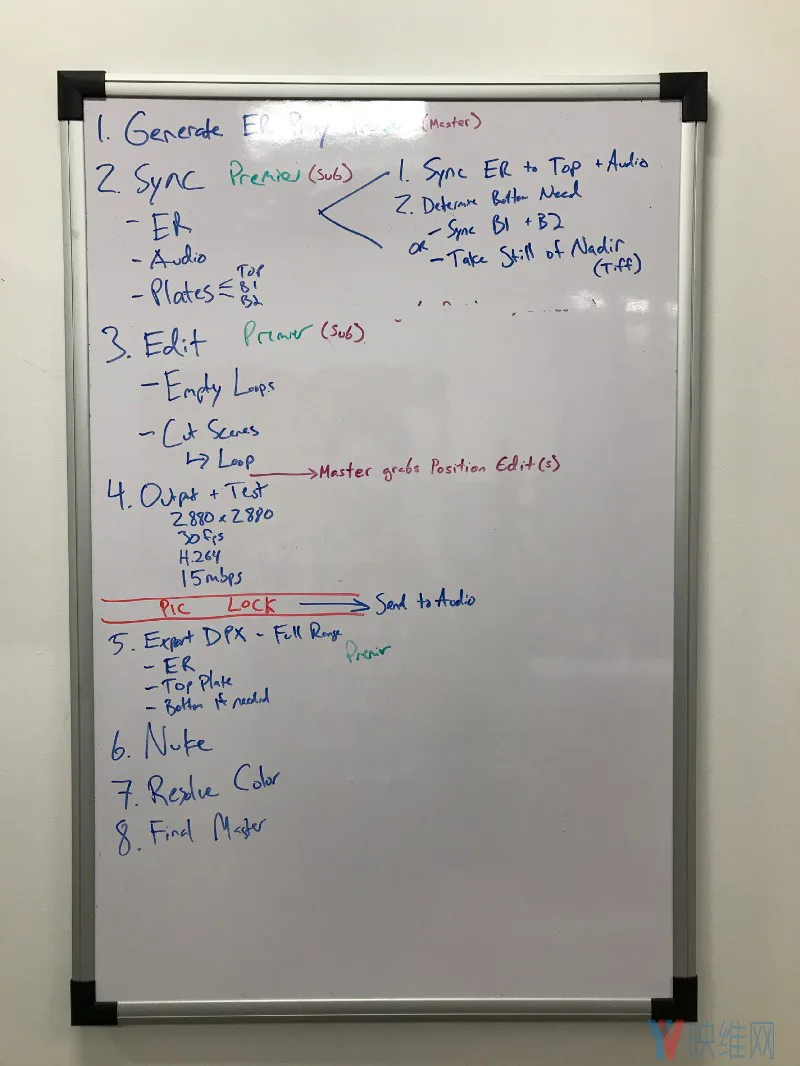 1. Generate ER (Master)
2. Sync Premier (Sub)
- ER
- Audio
- Plates TOP
B1
B2
1. Sync ER to Top + Audio
2. Determine Bottom Need
- Sync B1 + B2
OR
- Take Still of Nadir
(Tiff)
3. Edit Premier (Sub)
- Empty Loops
- Cut Scenes
↳ Loop
→ Master grabs Position Edit(s)
4. Output + Test
2880 x 2880
30fps
H.264
15mbps
PIC LOCK → Send to Audio
5. Export DPX - Full Range
Premier
- ER
- Top Plate
- Bottom if needed
6. Nuke
7. Resolve Color
8. Final Master
映维网